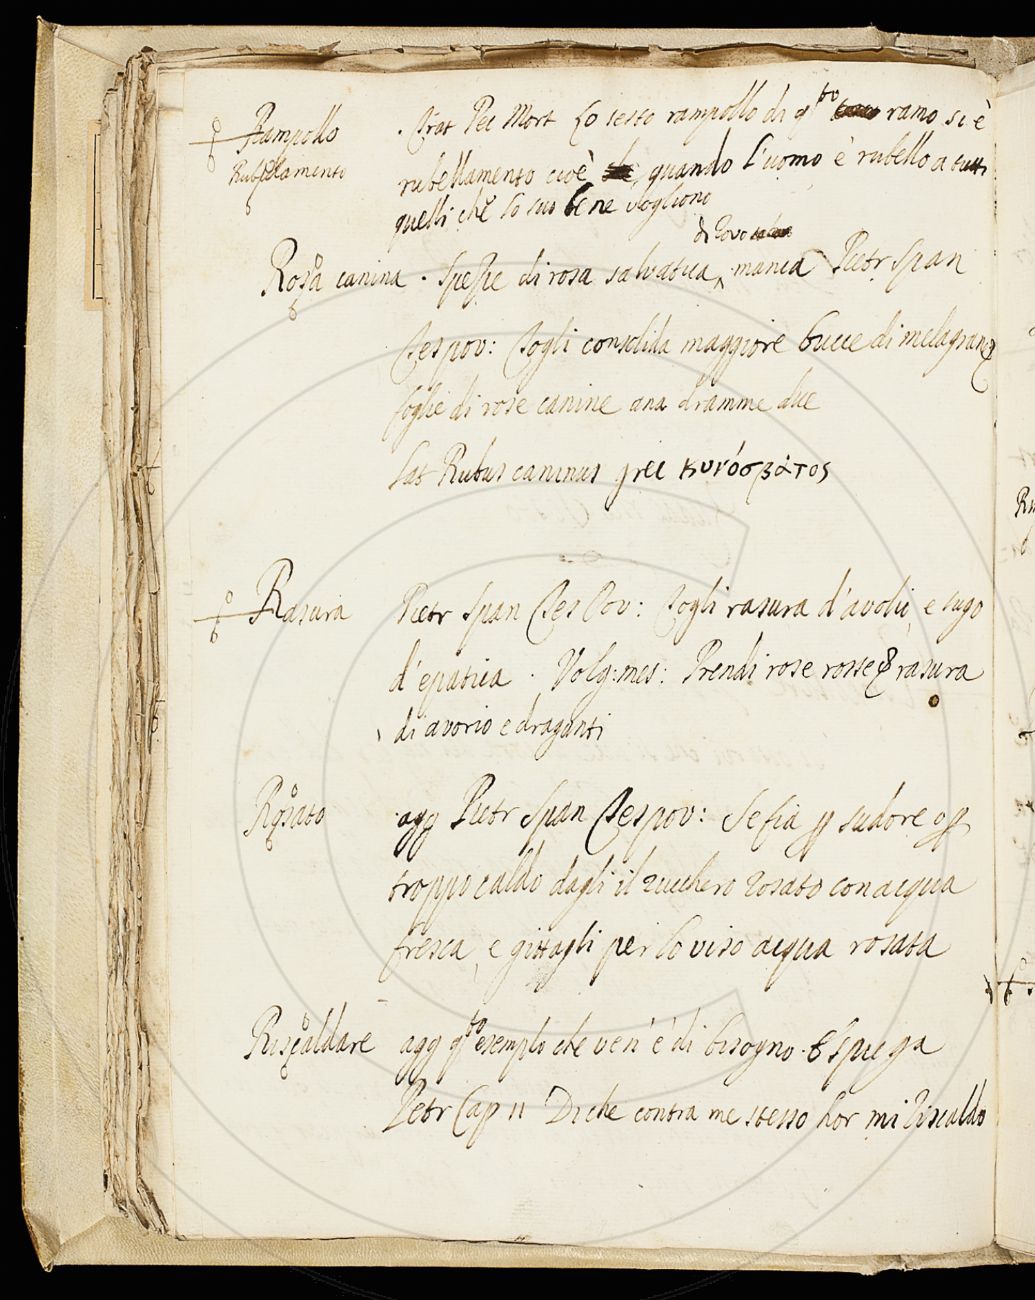 Rampollo . Trat Pec Mort Lo sesto rampollo di q.sto ramo si è
Rubellamento rubellamento cioè, quando l'uomo è rubello a tutti
quelli che lo suo bene vogliono
di Rovo
Rosa canina . Spezie di rosa salvatica, manca Pietr Span
Tes pov: Togli consolida maggiore bucce di melagrane
foglie di rose canine ana dramme due
Lat Rubus caninus grec κυνόσβατος
Rasura Pietr Span Tes Pov: Togli rasura d'avolio, e sugo
d'epatica . Volg: mes: Prendi rose rosse rasura
di avorio e draganti
Rosato agg Pietr Span Tes pov: Se fia p sudore o p
troppo caldo dagli il zucchero rosato con acqua
fresca, e gittagli per lo viso acqua rosata
Riscaldare agg q.sto esemplo che ven' è di bisogno.
Petr Cap 11 Di che contra me stesso hor mi riscaldo